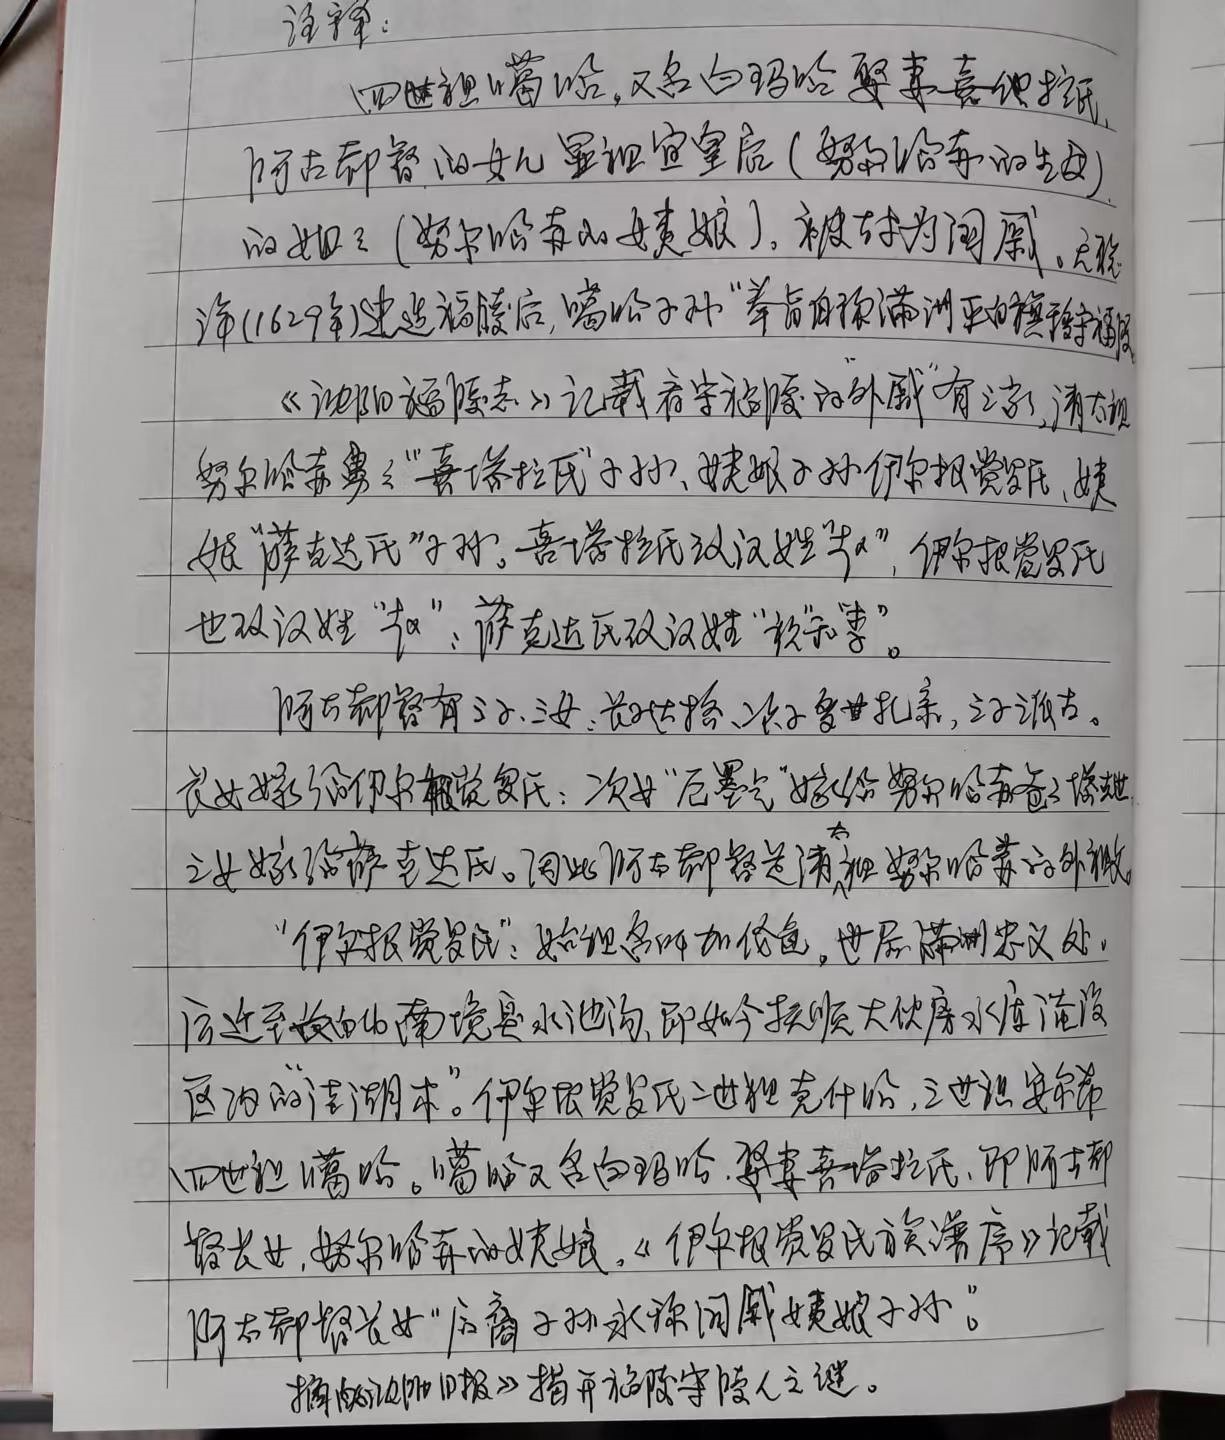 注释：
四世祖噶哈，又名白玛哈娶妻喜他拉氏，
阿古都督的女儿显祖宣皇后（努尔哈赤的生母）
的姐々（努尔哈赤的姨娘），被封为国戚。天聪
年(1629年)建造福陵后，噶哈子孙“奉旨自领满洲正白旗移守福陵
《沈阳福陵志》记载看守福陵的“外戚”有三家，清太祖
努尔哈赤舅々“喜塔拉氏”子孙、姨娘子孙伊尔根觉罗氏、姨
娘“萨克达氏”子孙。喜塔拉氏改汉姓“赵”，伊尔根觉罗氏
也改汉姓“赵”；萨克达氏改汉姓“祝”和“李”。
阿古都督有三子、三女：长子达格、次子鲁扎亲，三子派古。
长女嫁给伊尔根觉罗氏；次女“厄墨气”嫁给努尔哈赤爸々塔克世
三女嫁给萨克达氏。因此阿古都督是清太祖努尔哈赤的外祖父。
“伊尔根觉罗氏”：始祖名叫加佟色，世居满洲忠义处，
后迁至长白山南境是水池沟，即如今抚顺大伙房水库淹没
区内的“洼湖木”。伊尔根觉罗氏二世祖克什哈，三世祖安尔希
四世祖噶哈。噶哈又名白玛哈，娶妻喜塔拉氏，即阿古都
督长女，努尔哈赤的姨娘。《伊尔根觉罗氏族谱序》记载
阿古都督长女“后裔子孙永称国戚姨娘子孙”。
摘《沈阳日报》揭开福陵守陵人之谜。